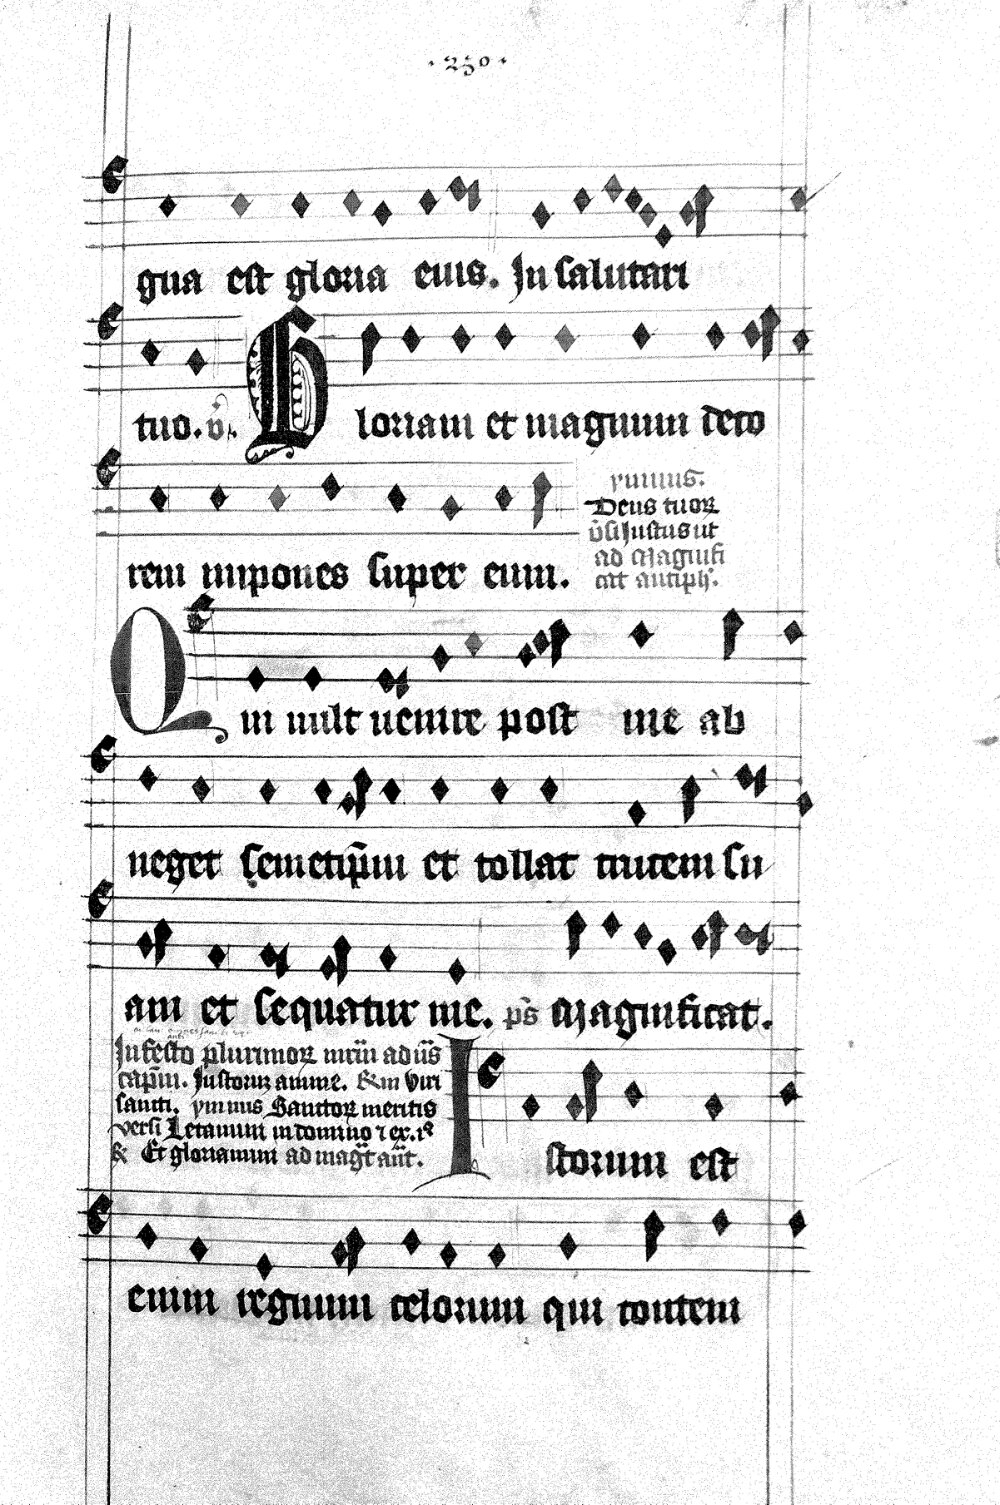 · 230 ·
gna est gloria eius. In salutari
tuo. v̄. Gloriam et magnum deco
rem impones super eum.
ymnus.
Deus tuoꝝ
v̄si Justus ut
ad Magnifi
cat antiph̄.
Qui uult uenire post me ab
neget semetip̄m et tollat crucem su
am et sequatur me. ps̄ Magnificat.
In festo plurimoꝝ mr̄m ad ūs
cap̄m. Justorum anime. ℟ In Viri
sancti. ymnus Sanctoꝝ meritis
versi Letamini in domino ⁊ ex.
℟ Et gloriamini ad maḡt an̄t.
Istorum est
enim regnum celorum qui contem